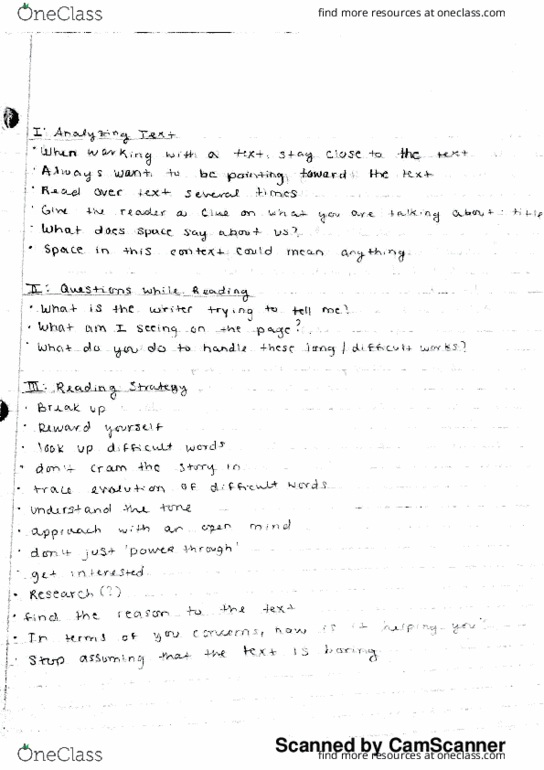 OneClass
find more resources at oneclass.com
I: Analyzing Text
• When working with a text, stay close to the text
• Always want to be pointing toward the text
• Read over text several times
• Give the reader a clue on what you are talking about: title
• What does space say about us?
• Space in this context could mean anything.
II: Questions while Reading
• What is the writer trying to tell me?
• What am I seeing on the page?
• What do you do to handle these long / difficult works?
III: Reading Strategy
• Break up
• Reward yourself
• look up difficult words
• don't cram the story in
• trace evolution of difficult words
• understand the tone
• approach with an open mind
• don't just 'power through'
• get interested
• Research (?)
• find the reason to the text
• In terms of you concerns, how is it helping you?
• Stop assuming that the text is boring
Scanned by CamScanner
OneClass
find more resources at oneclass.com